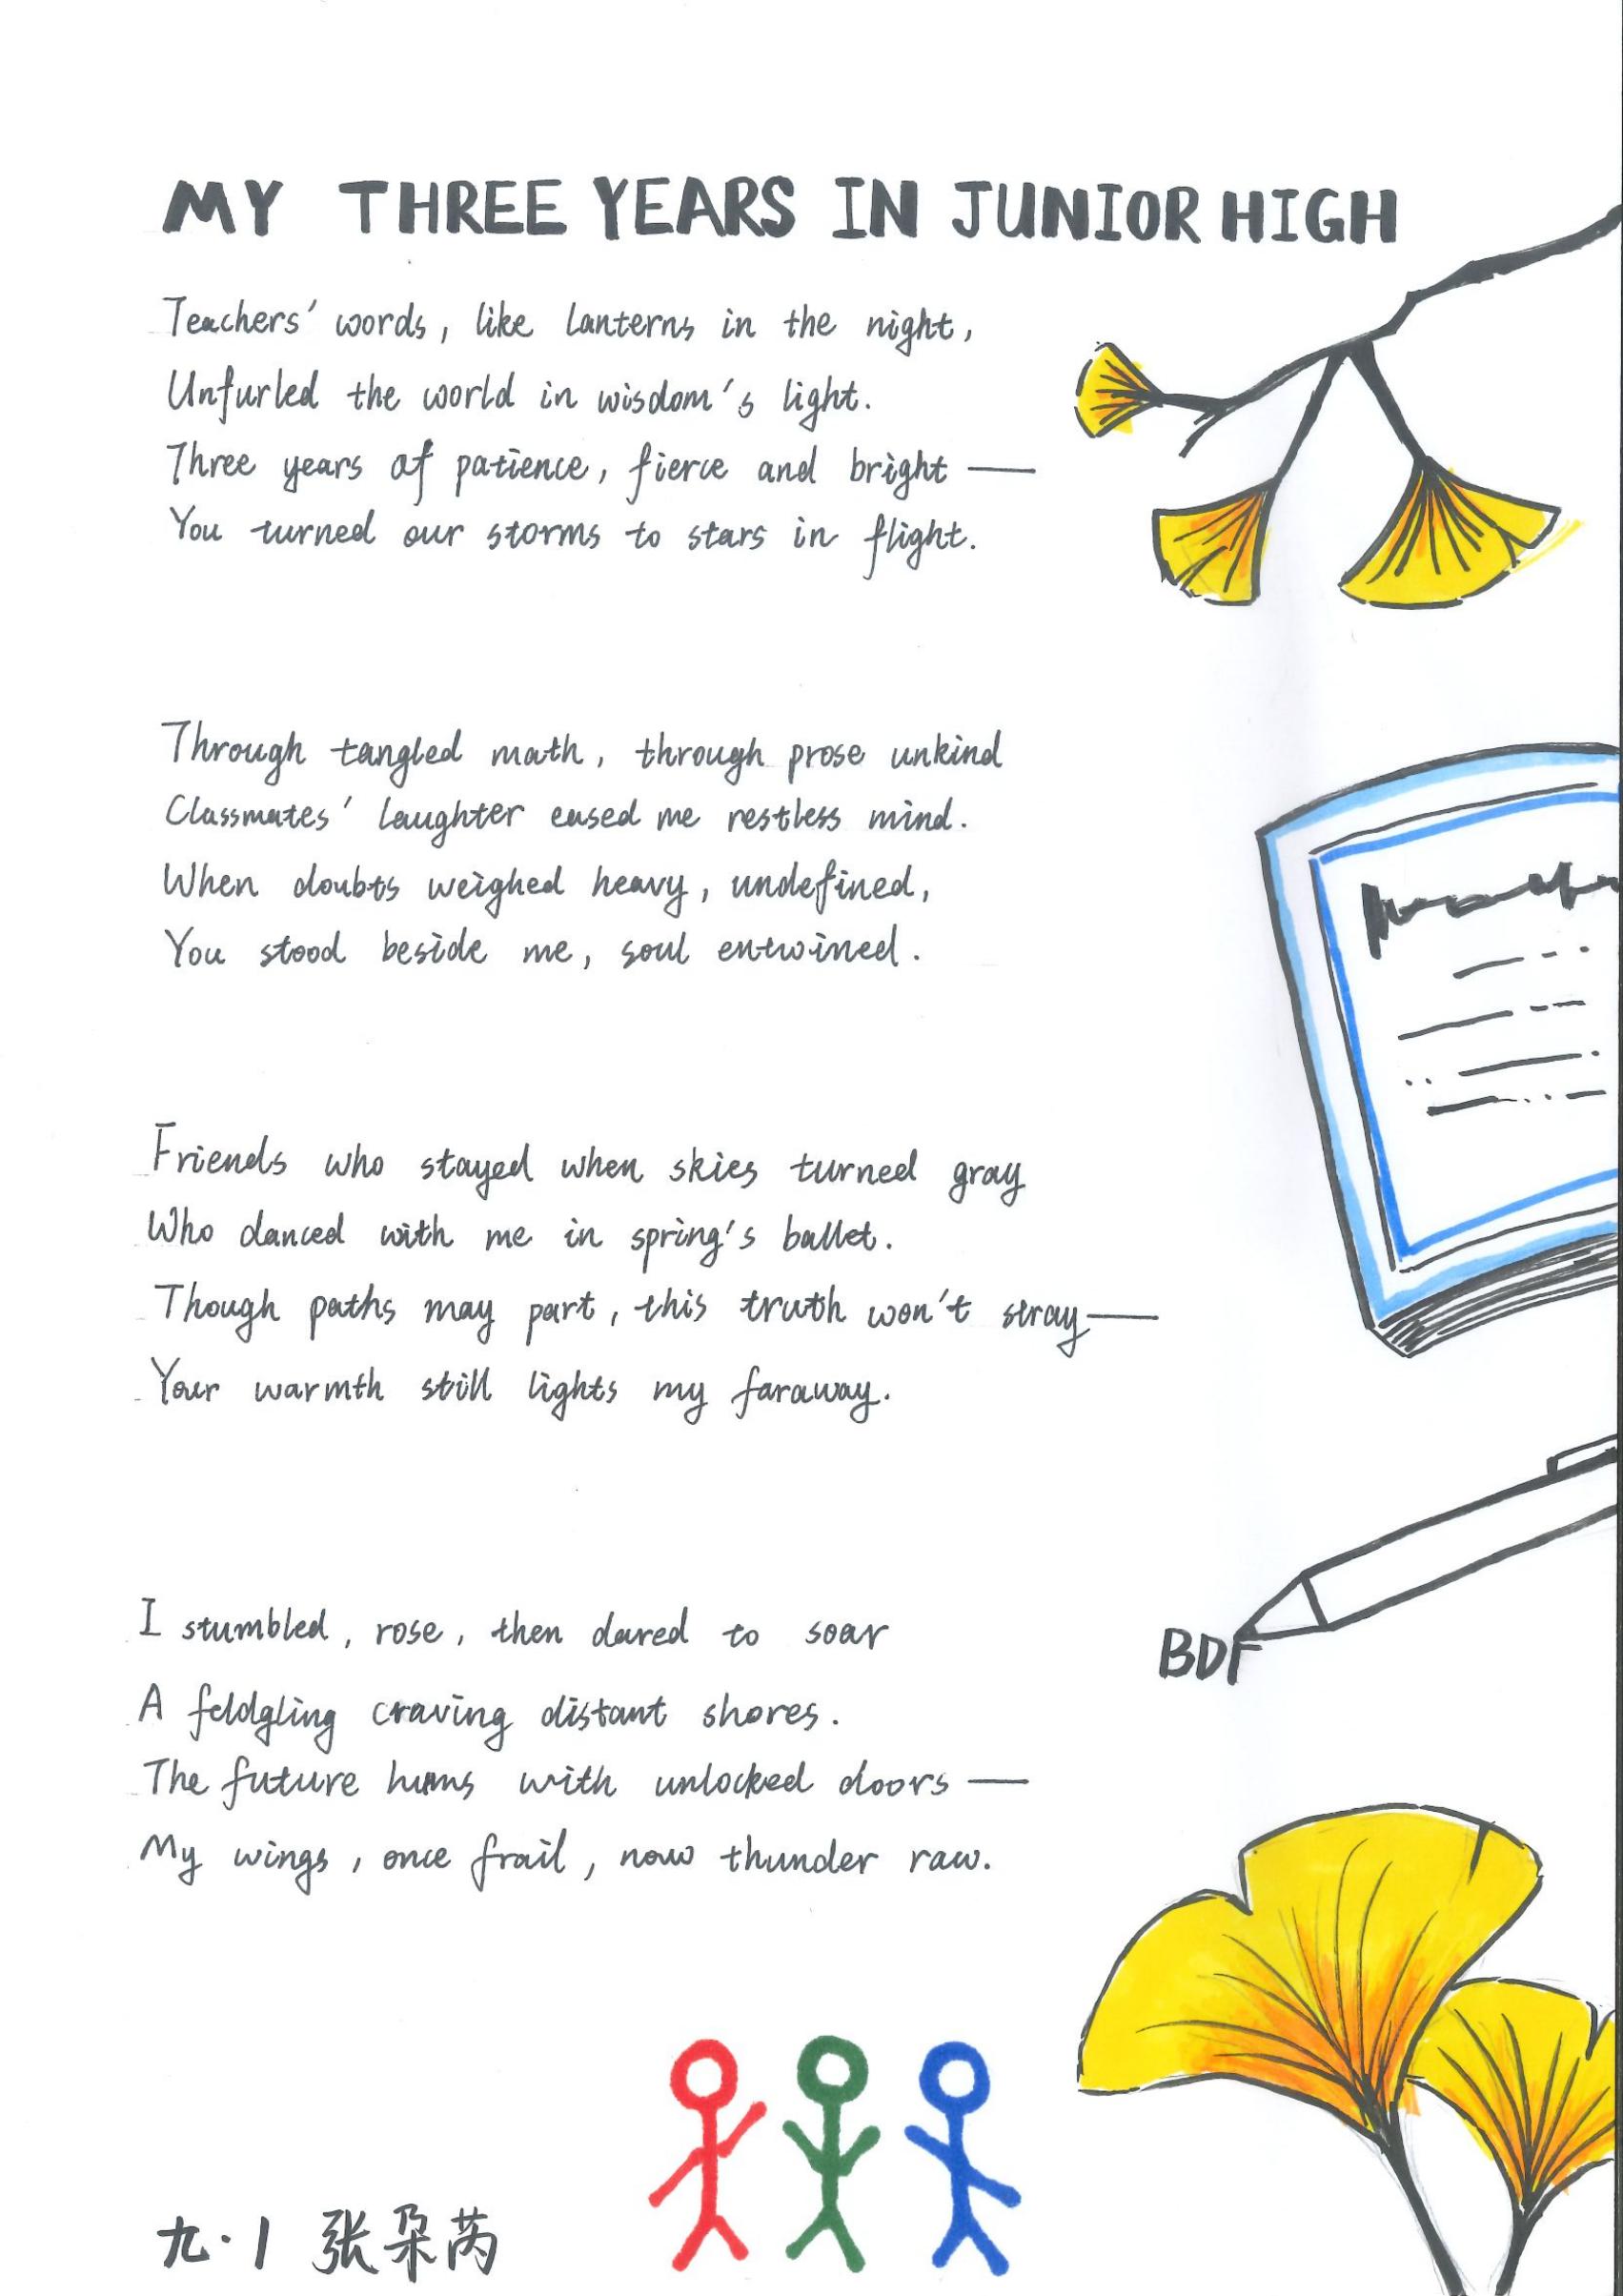 MY THREE YEARS IN JUNIOR HIGH
Teachers' words, like lanterns in the night,
Unfurled the world in wisdom's light.
Three years of patience, fierce and bright —
You turned our storms to stars in flight.
Through tangled math, through prose unkind
Classmates' laughter eased me restless mind.
When doubts weighed heavy, undefined,
You stood beside me, soul entwined.
Friends who stayed when skies turned gray
Who danced with me in spring's ballet.
Though paths may part, this truth won't stray —
Your warmth still lights my faraway.
I stumbled, rose, then dared to soar
BDF
A feldgling craving distant shores.
The future hums with unlocked doors —
My wings, once frail, now thunder raw.
九·1 张朵芮